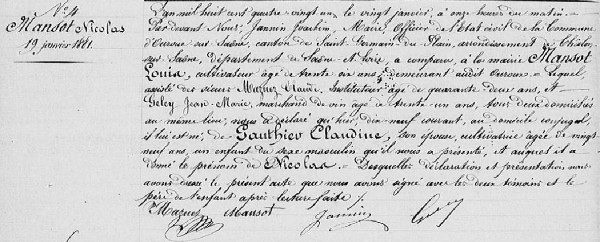 N° 4
Mansot Nicolas
19 janvier 1881.
L'an mil huit cent quatre vingt un, le vingt janvier, à onze heures du matin.
Par devant Nous, Jannin Joachim, Maire, Officier de l'état civil de la Commune
d'Ouroux sur Saône, canton de Saint Germain du Plain, arrondissement de Chalon
sur Saône, Département de Saône et Loire, a comparu, à la mairie Mansot
Louis, cultivateur âgé de trente six ans, demeurant audit Ouroux, lequel,
assisté des sieurs Claude, Instituteur âgé de quarante deux ans, et
Geley Jean-Marie, marchand de vin âgé de trente un ans, tous deux domiciliés
au même lieu, nous a déclaré qu'hier, dix-neuf courant, au domicile conjugal,
il lui est né, de Gauthier Claudine, son épouse, cultivatrice âgée de vingt
neuf ans, un enfant du sexe masculin qu'il nous a présenté, et auquel il a
donné le prénom de Nicolas. Desquelles déclaration et présentation nous
avons dressé le présent acte que nous avons signé avec les deux témoins et le
père de l'enfant après lecture faite.
Mansot Jannin